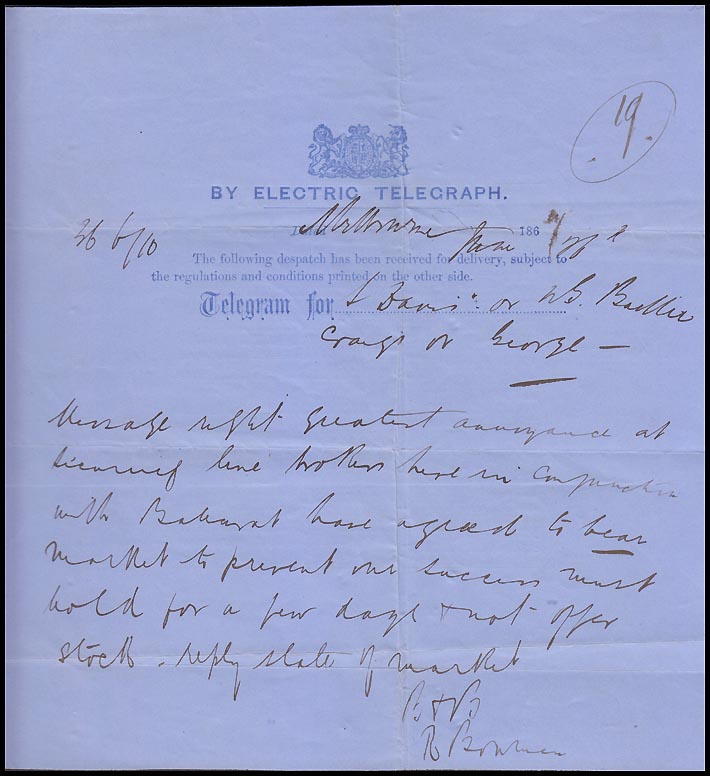 19.
BY ELECTRIC TELEGRAPH.
36 6/10 Melbourne June 186
The following despatch has been received for delivery, subject to
the regulations and conditions printed on the other side.
Telegram for Davis or W G Baillie
Craigs or George —
Message right greatest annoyance at
hearing line brokers here in conjunction
with Ballarat have agreed to bear
market to prevent our success must
hold for a few days + not offer
stock. reply state of market
B + B
R Bowman